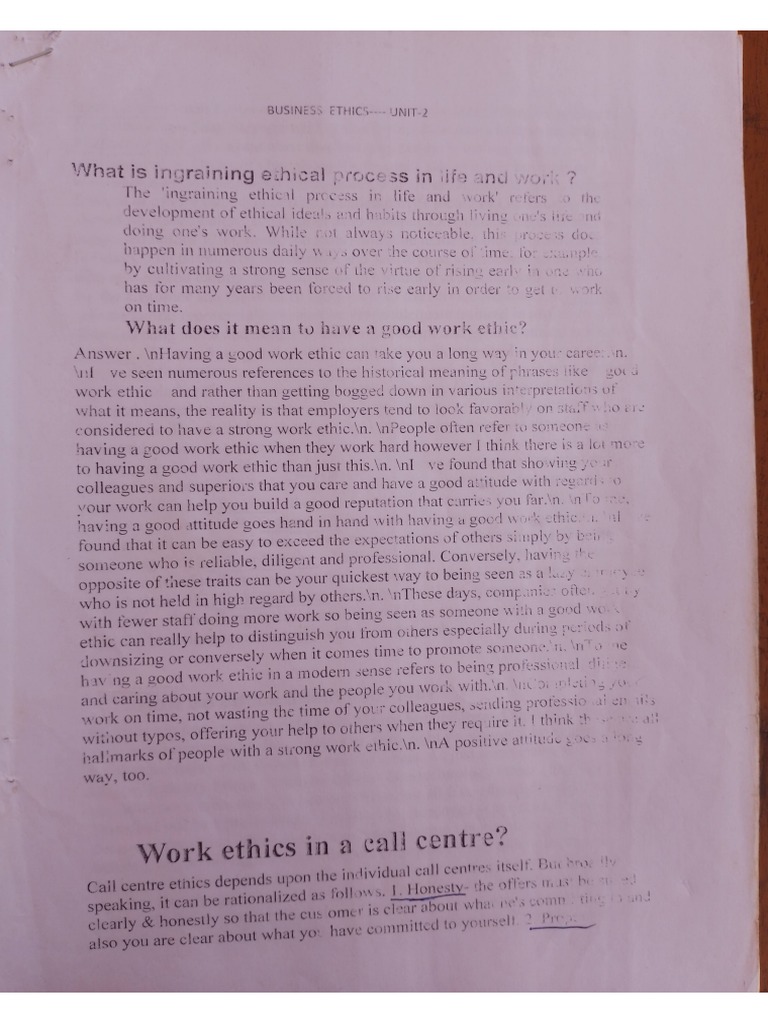 BUSINESS ETHICS---- UNIT-2
What is ingraining ethical process in life and work ?
The 'ingraining ethical process in life and work' refers to the
development of ethical ideals and habits through living one's life and
doing one's work. While not always noticeable, this process does
happen in numerous daily ways over the course of time, for example
by cultivating a strong sense of the virtue of rising early in one who
has for many years been forced to rise early in order to get to work
on time.
What does it mean to have a good work ethic?
Answer . \nHaving a good work ethic can take you a long way in your career.\n.
\nI ve seen numerous references to the historical meaning of phrases like good
work ethic and rather than getting bogged down in various interpretations of
what it means, the reality is that employers tend to look favorably on staff who are
considered to have a strong work ethic.\n. \nPeople often refer to someone as
having a good work ethic when they work hard however I think there is a lot more
to having a good work ethic than just this.\n. \nI ve found that showing your
colleagues and superiors that you care and have a good attitude with regards to
your work can help you build a good reputation that carries you far.\n. \nTo me,
having a good attitude goes hand in hand with having a good work ethic.\n. \nI ve
found that it can be easy to exceed the expectations of others simply by being
someone who is reliable, diligent and professional. Conversely, having the
opposite of these traits can be your quickest way to being seen as a lazy employee
who is not held in high regard by others.\n. \nThese days, companies often get by
with fewer staff doing more work so being seen as someone with a good work
ethic can really help to distinguish you from others especially during periods of
downsizing or conversely when it comes time to promote someone.\n. \nTo me
having a good work ethic in a modern sense refers to being professional
and caring about your work and the people you work with.\n. \nCompleting your
work on time, not wasting the time of your colleagues, sending professional emails
without typos, offering your help to others when they require it. I think these are all
hallmarks of people with a strong work ethic.\n. \nA positive attitude goes a long
way, too.
Work ethics in a call centre?
Call centre ethics depends upon the individual call centres itself. But broadly
speaking, it can be rationalized as follows. 1. Honesty- the offers must be
clearly & honestly so that the customer is clear about what he's committing to and
also you are clear about what you have committed to yourself. 2.